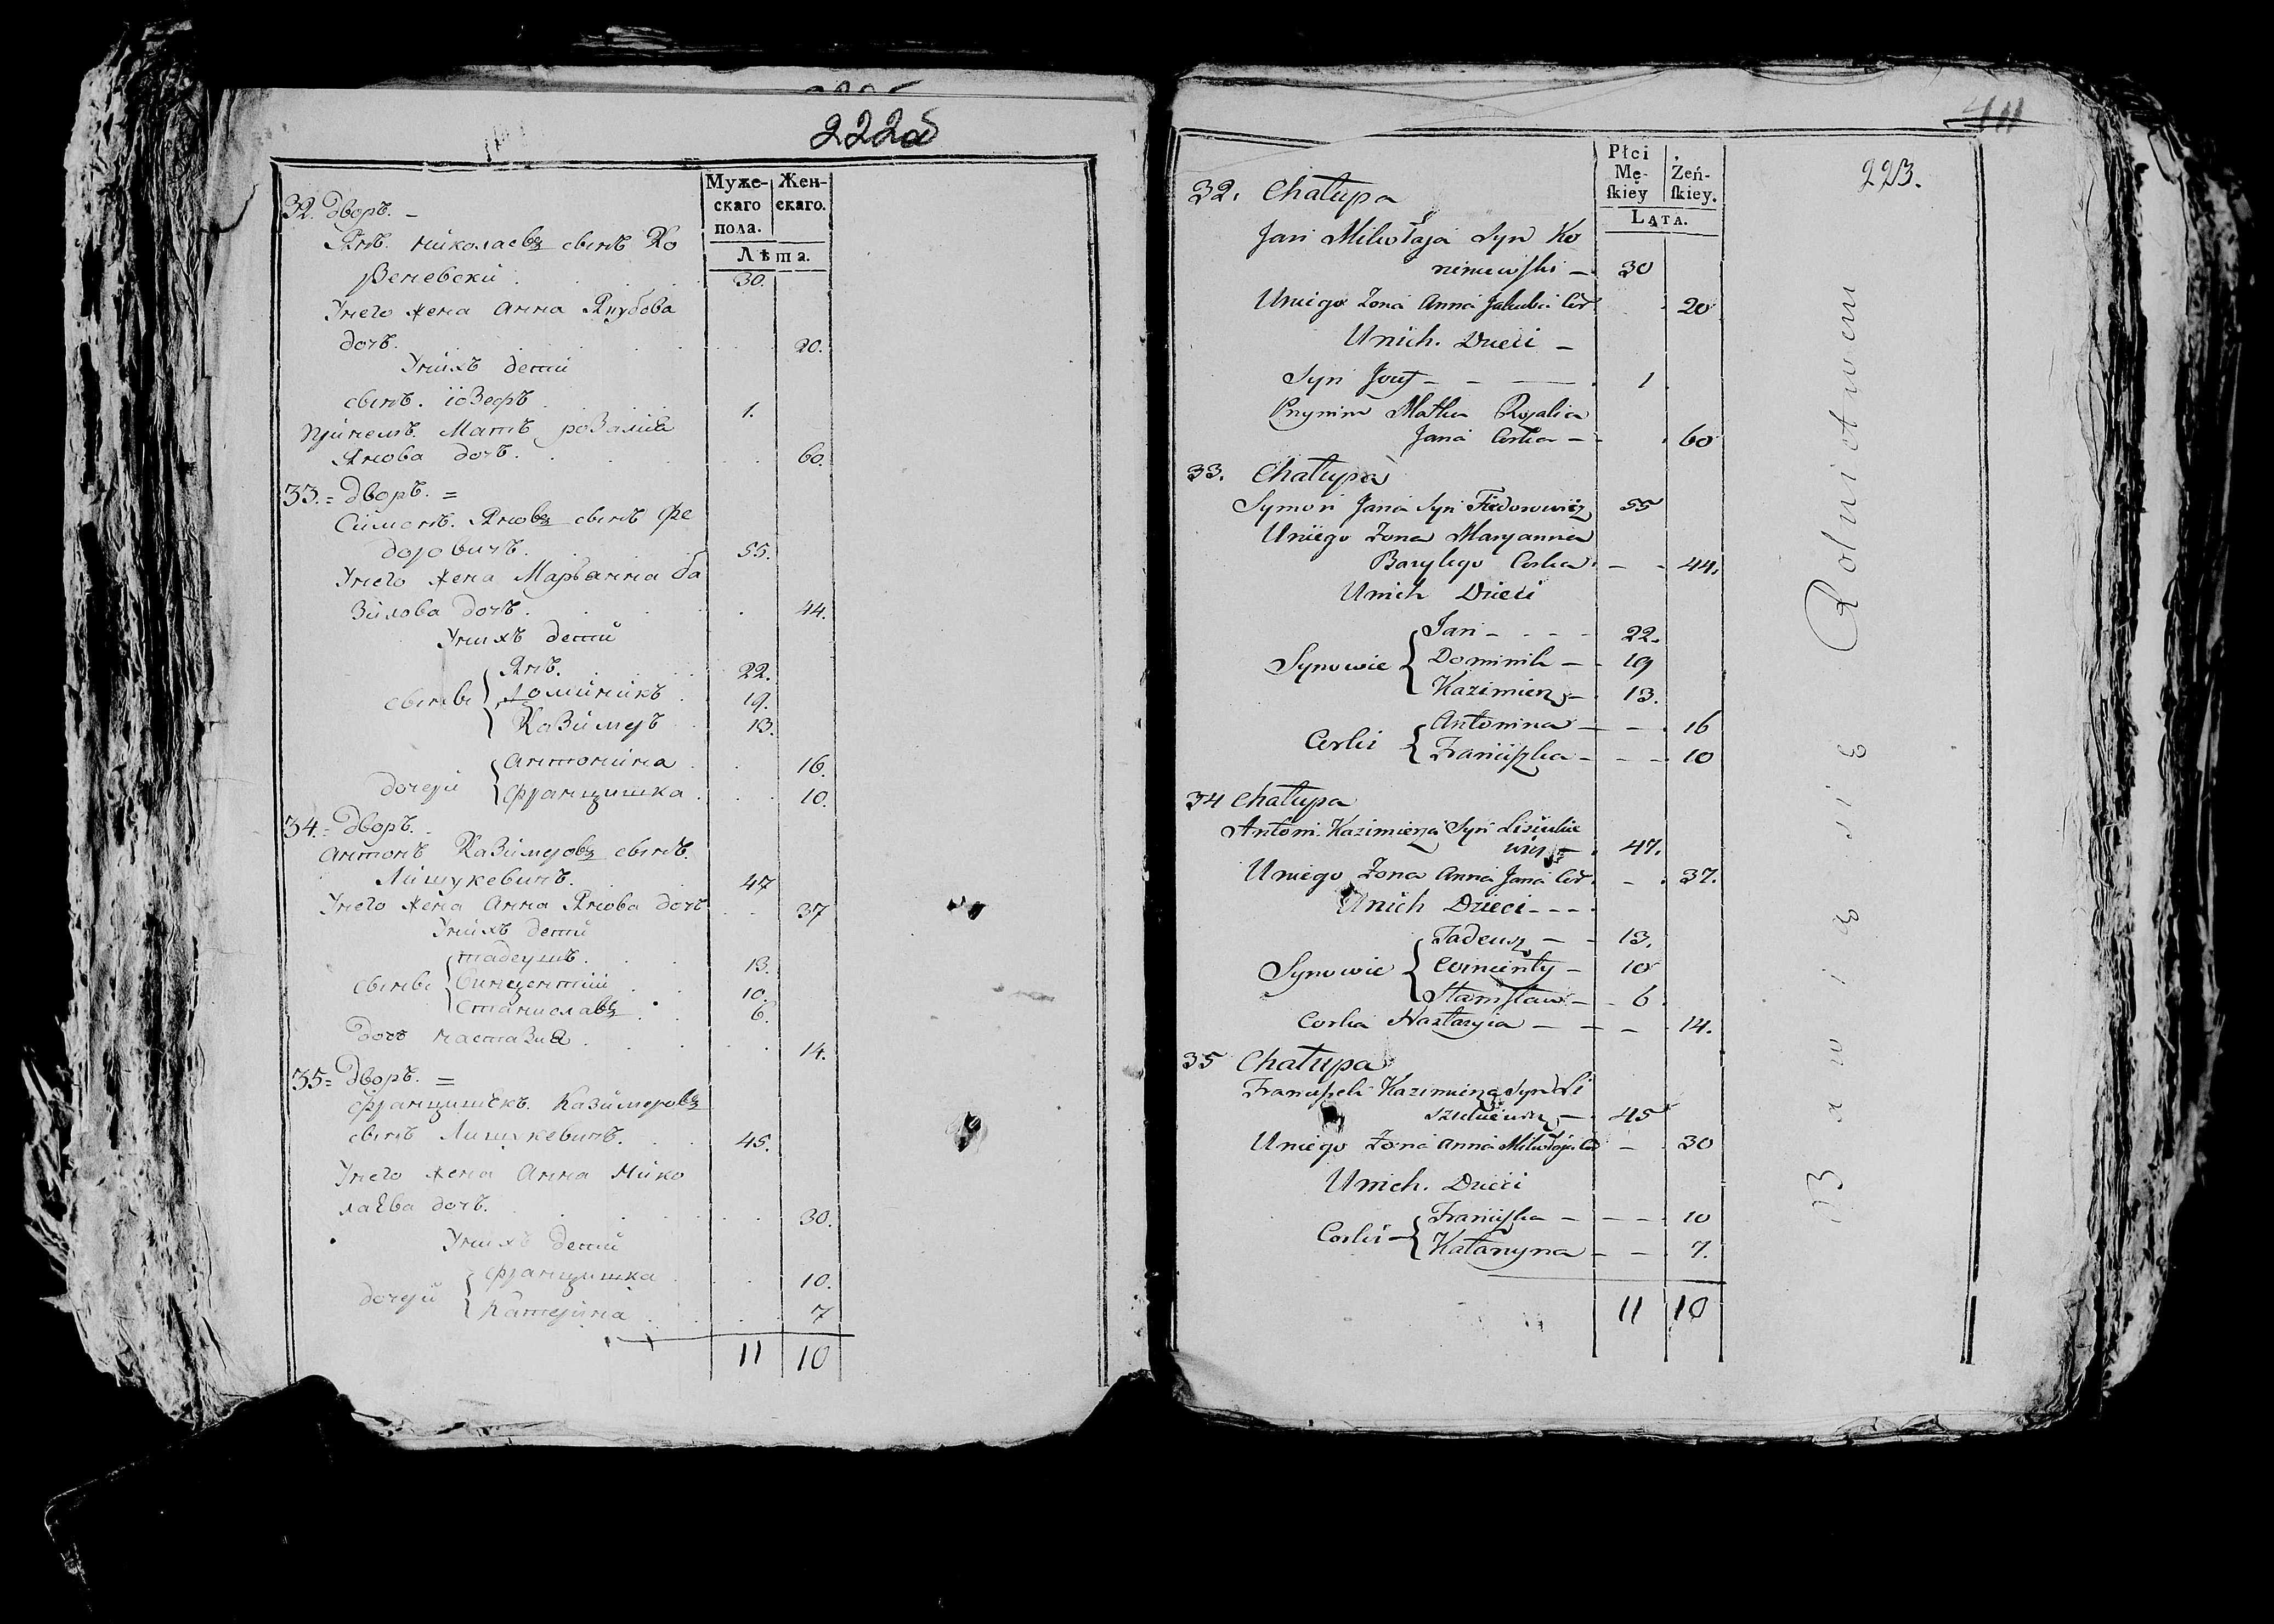 222об
Муже-
скаго
пола.
Жен-
скаго.
Лѣта.
32. Дворъ. –
Янъ. николаевъ сынъ Ко
30.
Унего жена Анна Якубова
дочъ. 20.
Унихъ дети
сынъ. іозефъ 1.
Принемъ. Матъ розалиа
Янова дочъ. 60.
33. = Дворъ. =
Симонъ. Яновъ сынъ Фе
доровичъ. 55.
Унего жена Марьанна ба
зилова дочъ. 44.
Унихъ дети
сыновъ Янъ. 22.
Доминикъ 19.
Казимеръ 13.
дочери Антонина 16.
Францишка 10.
34. = Дворъ.
Антонъ Казимеровъ сынъ.
Лишукевичъ. 47
Унего жена Анна Янова дочъ 37
Унихъ дети
тадеушъ. 13.
Винцентий 10.
Станиславъ 6.
Дочъ настазиа 14.
35 = Дворъ. =
Францишекъ. Казимеровъ
сынъ Лишукевичъ. 45.
Унего жена Анна Нико
лаева дочъ. 30.
Унихъ дети
дочери Францишка 10.
Катерина 7
11 10
411
223.
Płci
Mę-
skiey
Żeń-
skiey.
Lata.
32. Chałupa
Jan Mikołaja Syn Ko
niewski – 30
Uniego Żona Anna Jakuba Cór 20
Unich. Dzieci –
Syn Jozef – – – 1
Przynim Matka Rozalia
Jana Corka – 60
33. Chałupa
Symon Jana Syn Fiedorowicz 55
Uniego Żona Maryanna
Bazylego Corka – – 44.
Unich Dzieci
Synowie Jan – – – 22.
Dominik – 19
Kazimierz – 13.
Corki Antonina – – 16
Franciszka – – – 10
34 Chałupa
Antoni Kazimierza Syn Lisiukie
wicz – 47.
Uniego Żona Anna Jana Cór – 37.
Unich Dzieci – – –
Synowie Tadeusz – – 13.
Wincenty – 10
Stanisław – – 6
Corka Nastazyia – – – 14.
35 Chałupa
Franciszek Kazimierza Syn Li
szukiewicz – 45
Uniego Żona Anna Mikołaja Có – 30
Unich. Dzieci
Corki – Franciszka – – – 10
Katarzyna – – 7.
11 10
Bawię się Rolnictwem